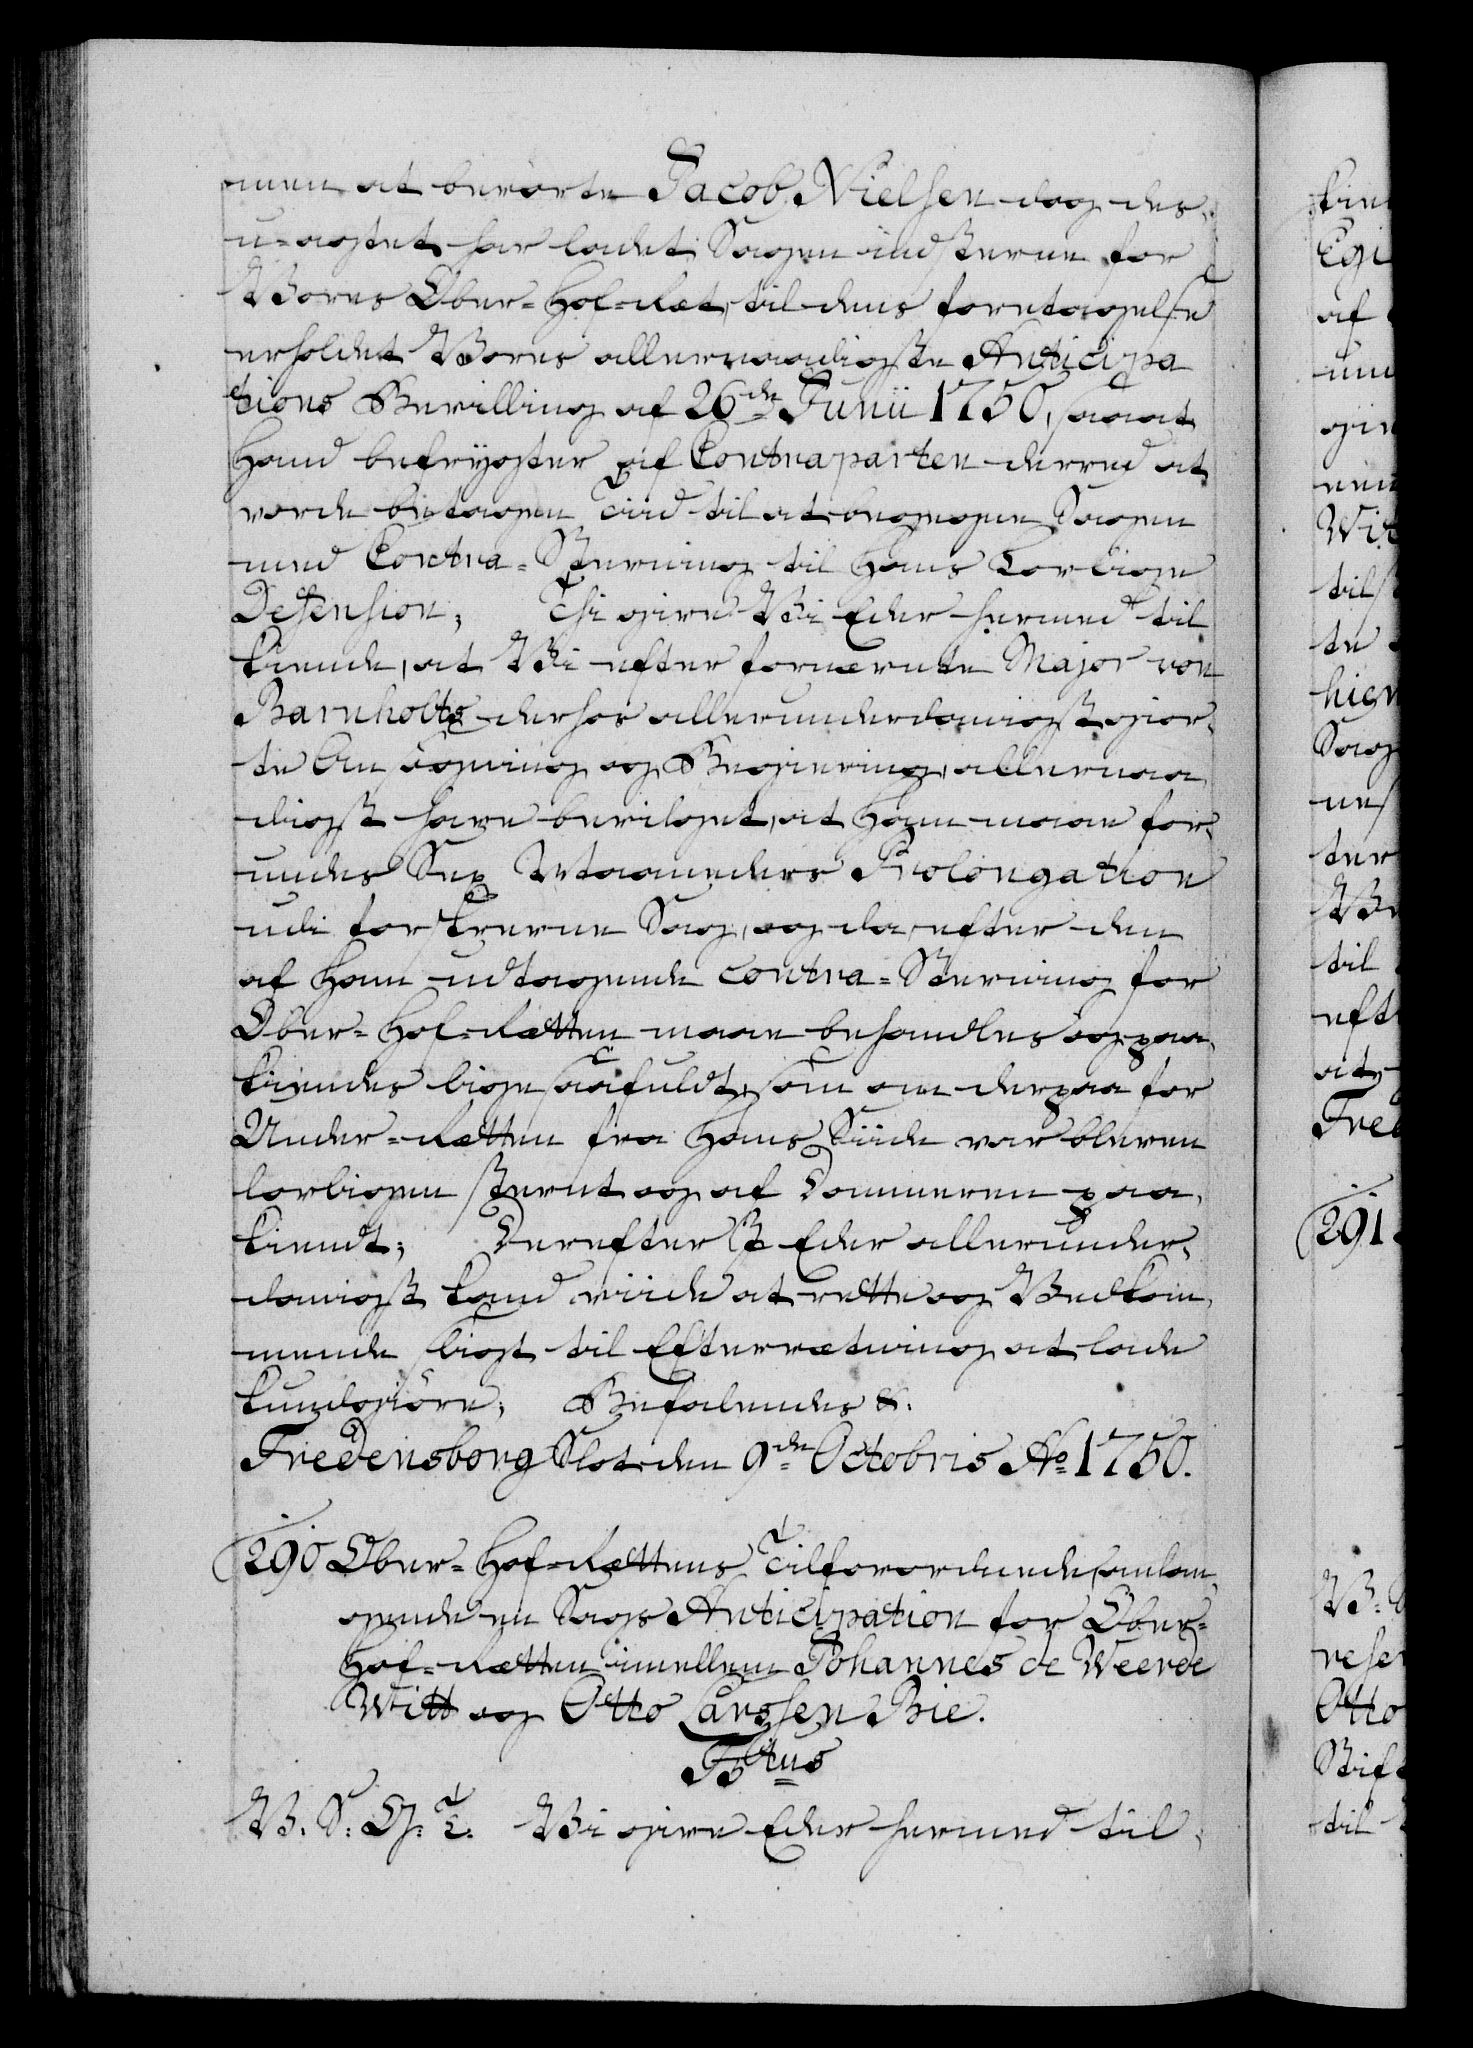 men at berørte Jacob Nielsen dog des-
u-agtet har ladet Sagen indstevne for
Vores Ober-Hof-Ræt, til dens foretagelse
erholdet Vores allernaadigste Anticipa
tions Bevilling af 26de Junii 1750, saa at
Hand befrygter af Contraparten derved at
vorde betagen Tiid til at begegne Sagen
med Contra-Stevning til Hans Lovlige
Defension; Thi give Vi Eder hermed til
kiende, at Vi efter fornevnte Major von
Barnholts derhos allerunderdanigst gior-
te Ansøgning og Begiering, allernaa
digst have bevilget, at Ham maae for-
undes Sex Maaneders Prolongation
udi forskrevne Sag, og da efter den
af Ham udtagende Contra-Stevning for
Ober-Hof-Rætten maae behandles og paa-
kiendes lige saafuldt, som om derpaa for
Under-Rætten fra Hans Siide var bleven
lovligen stevnt og af Dommeren paa-
kiendt; Derefter I Eder allerunder-
danigst kand viide at rette og Vedkom-
mende sligt til Efterrætning at lade
kundgiøre; Befalendes &.
Fredensborg Slot den 9de Octobris Ao 1750.
290 Ober-Hof-Rættens Tilforordnede, anlan-
gende en Sags Anticipation for Ober-
Hof-Rætten imellem Johannes de Weerde
Witt og Otto Larssen Bie.
F5tus
V. S. G. T. Vi give Eder hermed til